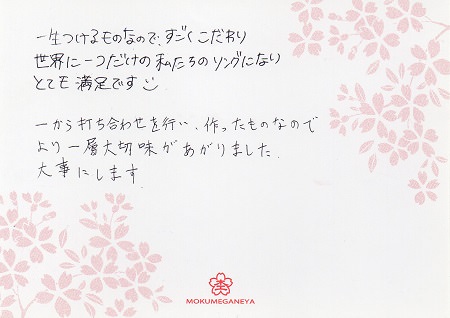 一生つけるものなので、すごくこだわり
世界に一つだけの私たちのリングになり
とても満足です
一から打ち合わせを行い、作ったものなので
より一層大切味があがりました。
大事にします。
MOKUMEGANEYA